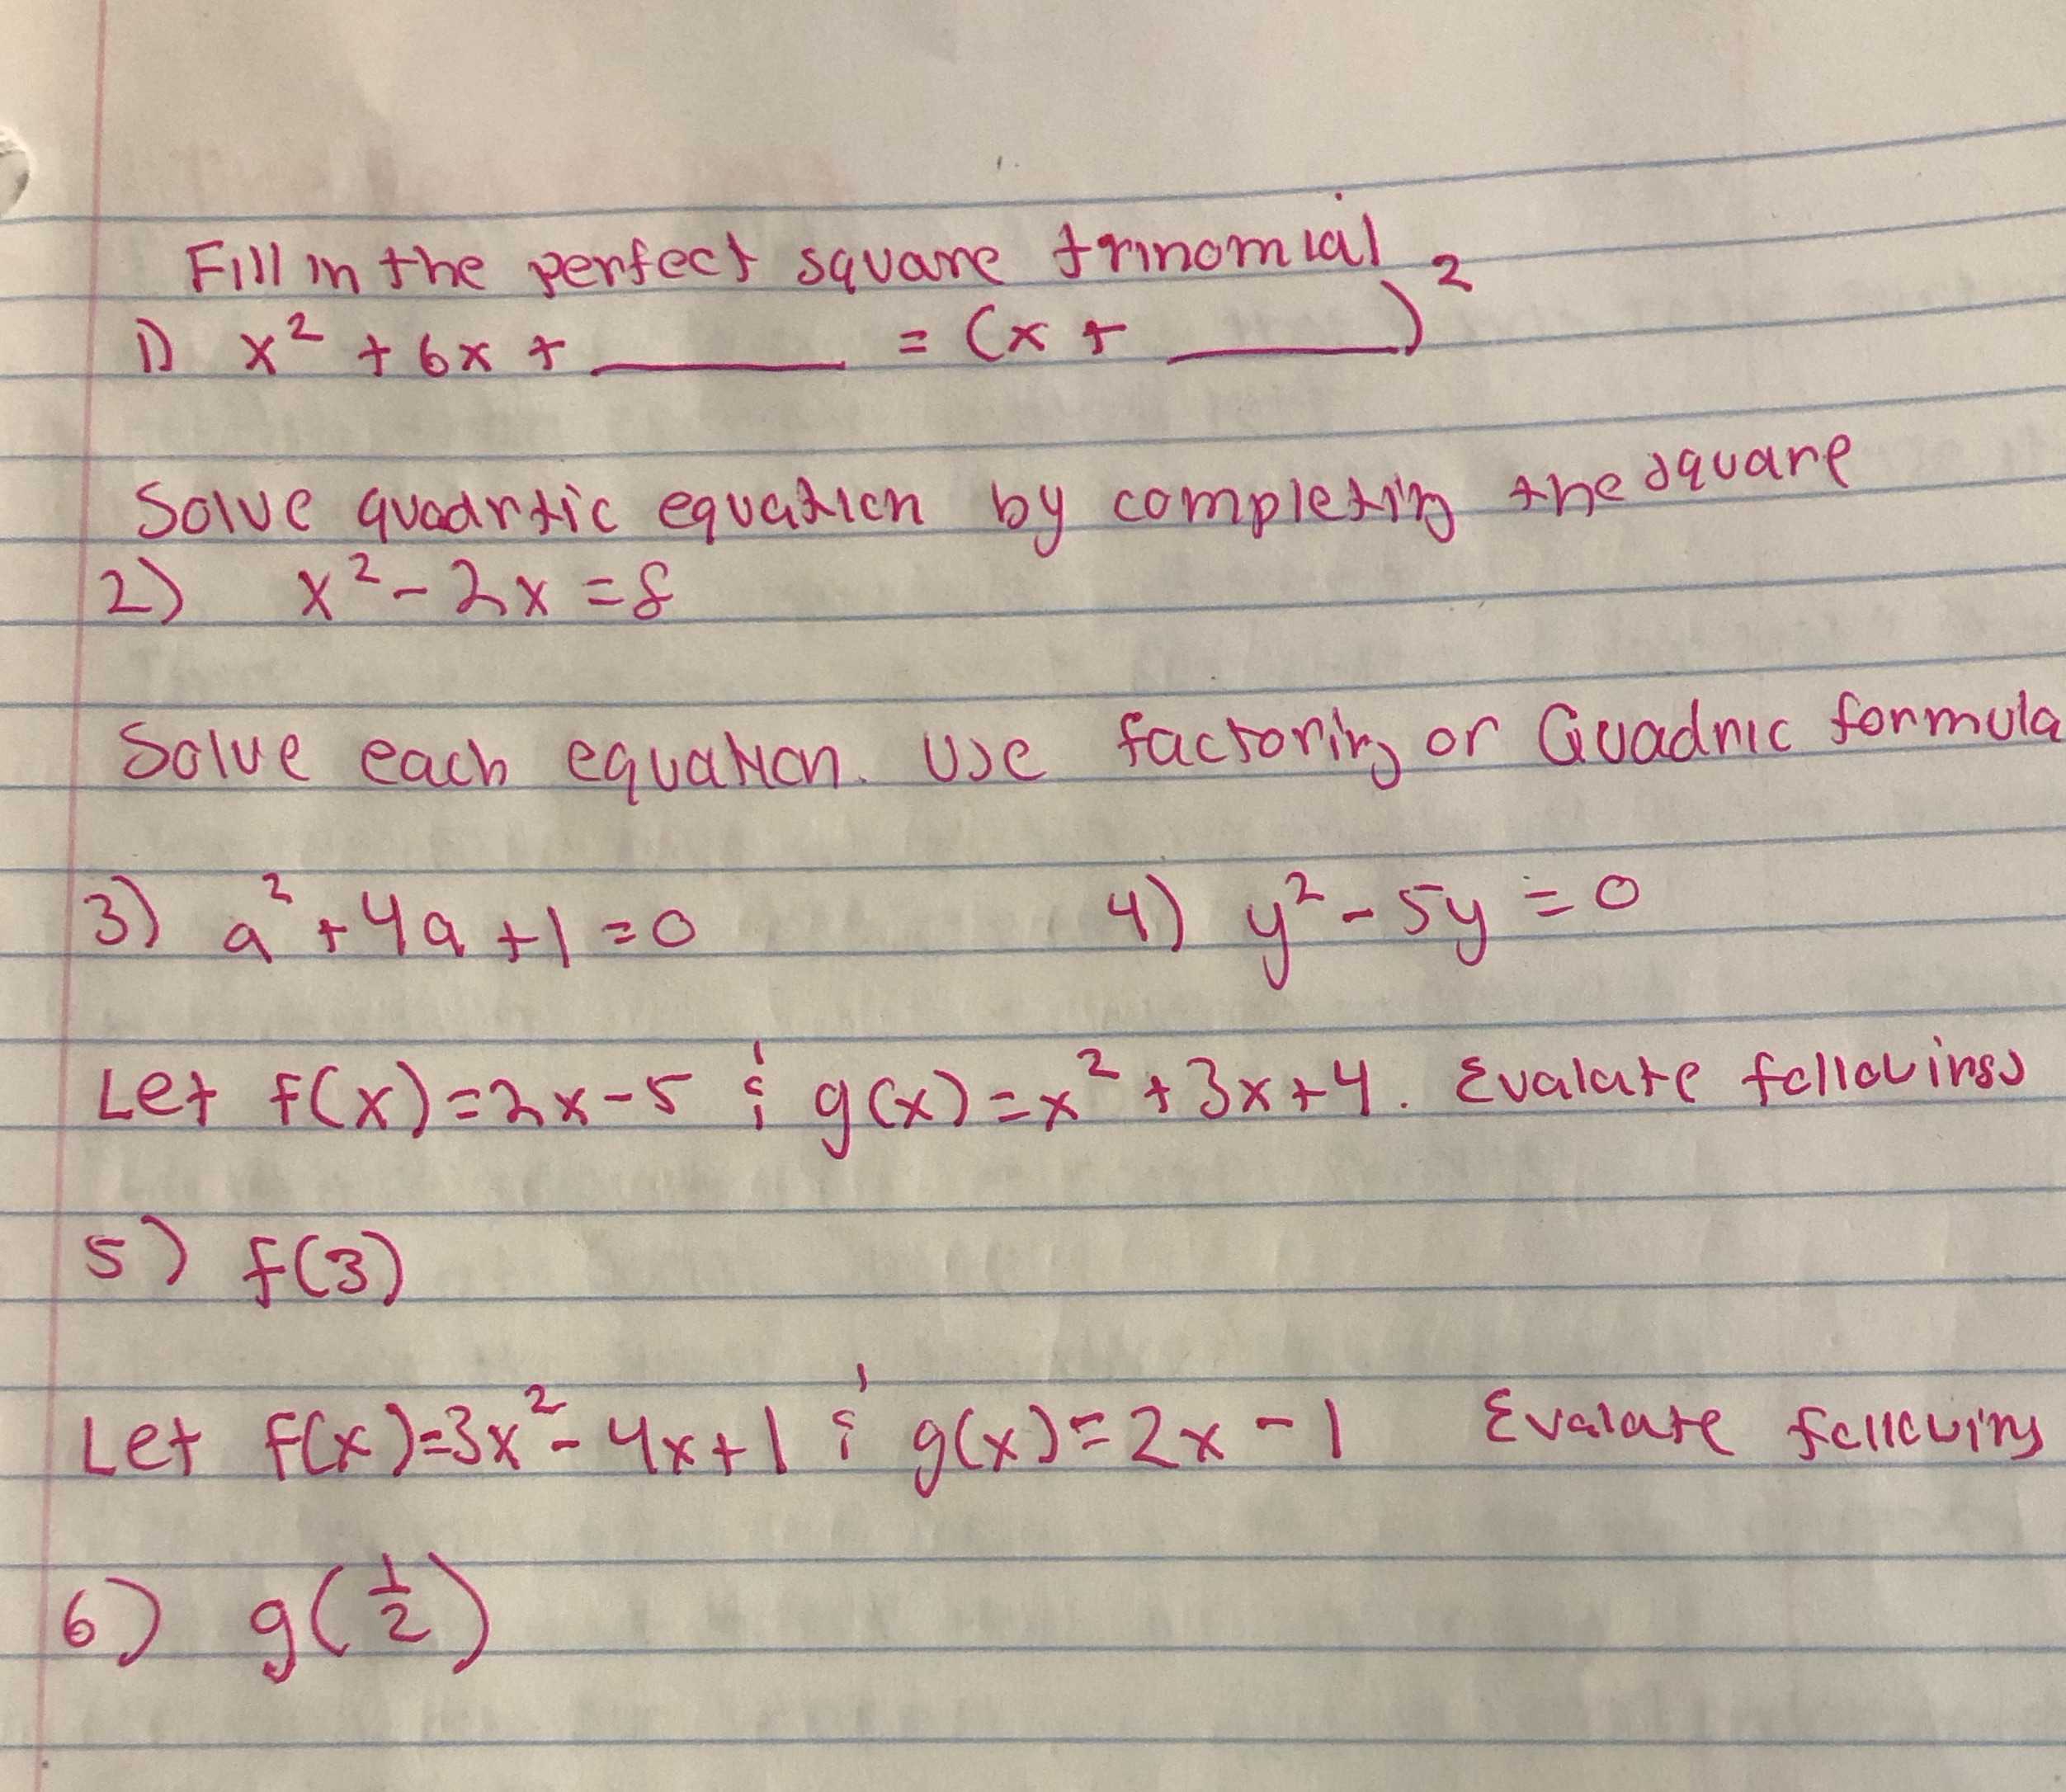 Fill in the perfect square trinomial
1) x² + 6x + ______ = (x + ______)²
Solve quadrtic equation by completing the square
2) x² - 2x = 8
Solve each equation. Use factoring or Quadric formula
3) a² + 4a + 1 = 0 4) y² - 5y = 0
Let f(x) = 2x - 5 & g(x) = x² + 3x + 4. Evalate followings
5) f(3)
Let f(x) = 3x² - 4x + 1 & g(x) = 2x - 1 Evalate following
6) g(1/2)